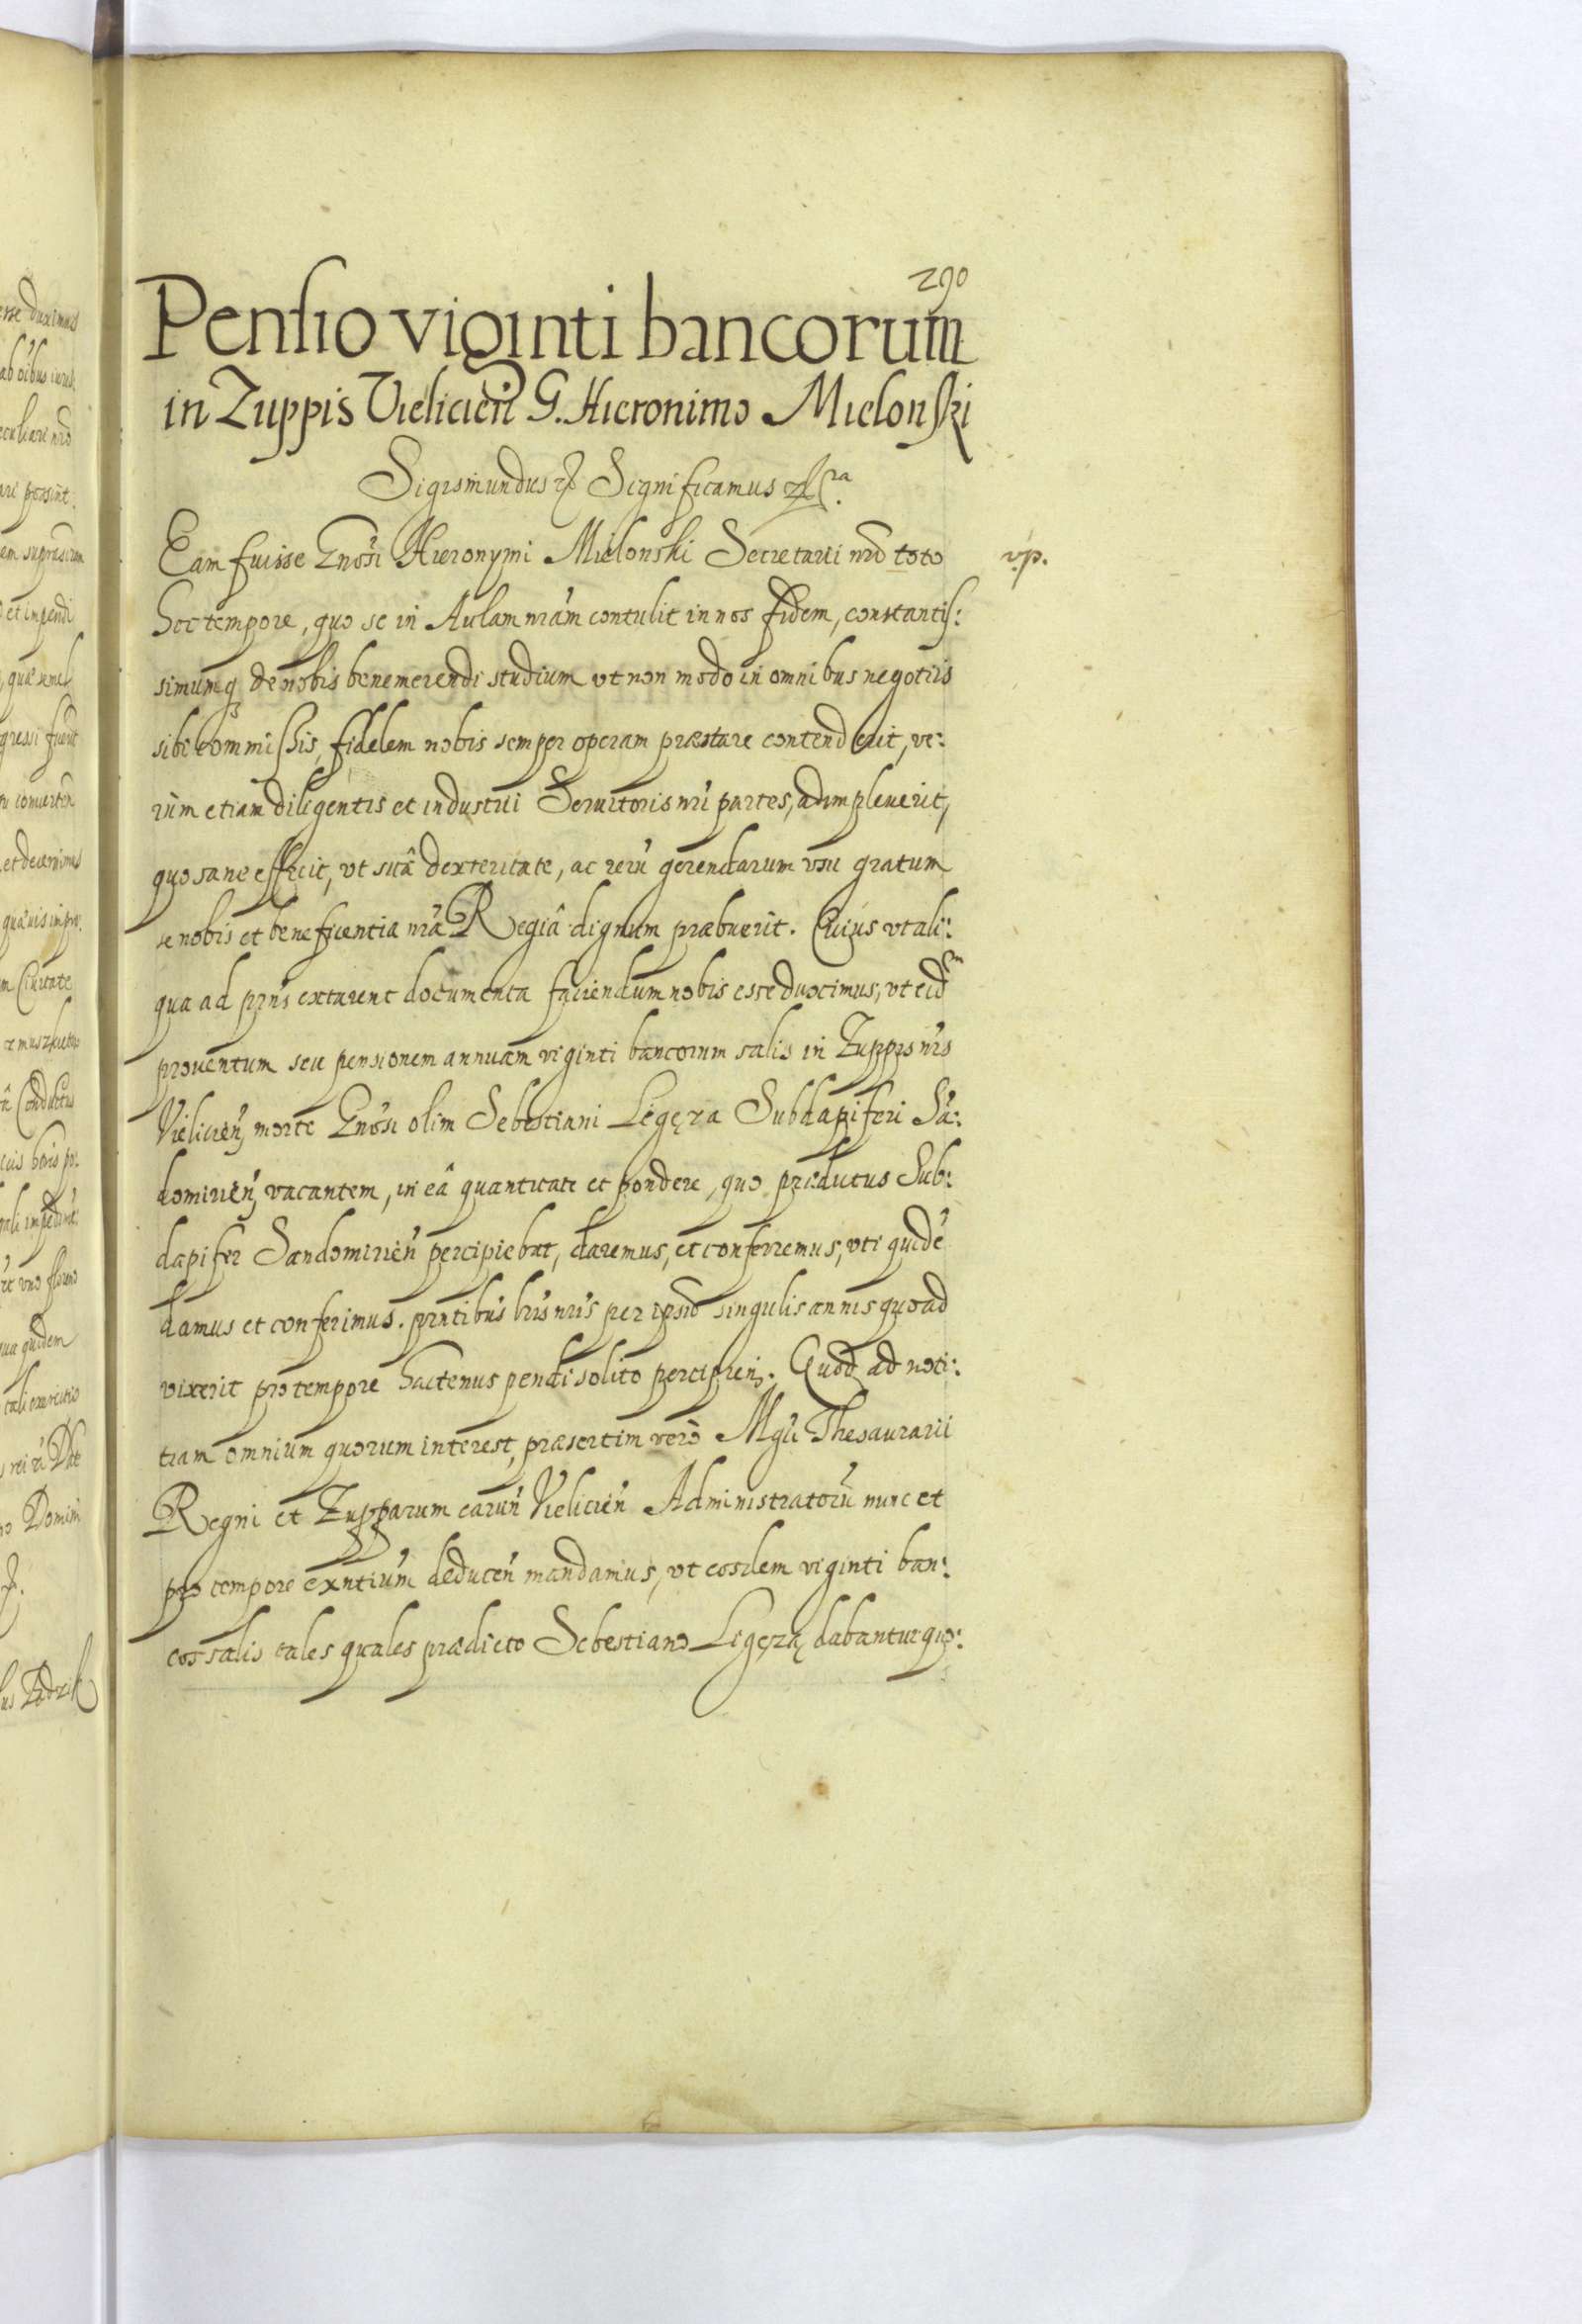 290
Pensio viginti bancorum
in Zuppis Vielicień G. Hieronimo Mielonski
Sigismundus Significamus
Eam fuisse Gnosi Hieronymi Mielonski Secretarii nrõ toto
v.p.
hoc tempore, quo se in Aulam nrãm contulit in nos fidem, constantis:
simumq de nobis benemerendi studium vt non modo in omnibus negotiis
sibi commissis, fidelem nobis semper operam præstare contenderit, ve:
rùm etiam diligentis et industrii Seruitoris nri partes, adimpleuerit,
quo sane effecit, vt suâ dexteritate, ac rerũ gerendarum vsu gratum
se nobis et beneficentia nrã Regiâ dignum præbuerit. Cuius vt ali:
qua ad prñs extarent documenta faciendum nobis esse duximus, vt eidem
prouentum seu pensionem annuam viginti bancorum salis in Zuppis nris
Vielicień, morte Gnosi olim Sebestiani Ligęza Subdapiferi Sã:
domirień, vacantem, in eâ quantitate et pondere, quo prædictus Sub:
dapifer Sandomirień percipiebat, daremus, et conferremus, vti quidẽ
damus et conferimus. prntibus lris nris per ipsũ singulis annis quoad
vixerit pro tempore hactenus pendi solito percipień. Quod ad noti:
tiam omnium quorum interest, præsertim verò Mgci Thesaurarii
Regni et Zupparum earuń Vielicień Administratorũ nunc et
pro tempore exntium deducen mandamus, vt eosdem viginti ban:
cos salis tales quales prædicto Sebestiano Ligęzą dabantur quo: